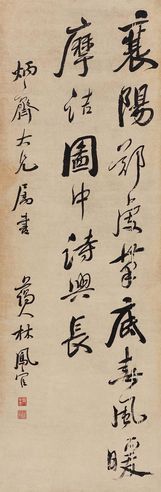 襄陽鄭虔筆底春風暖
摩詰圖中詩興長
炳齊大兄屬書
藹人林鳳官